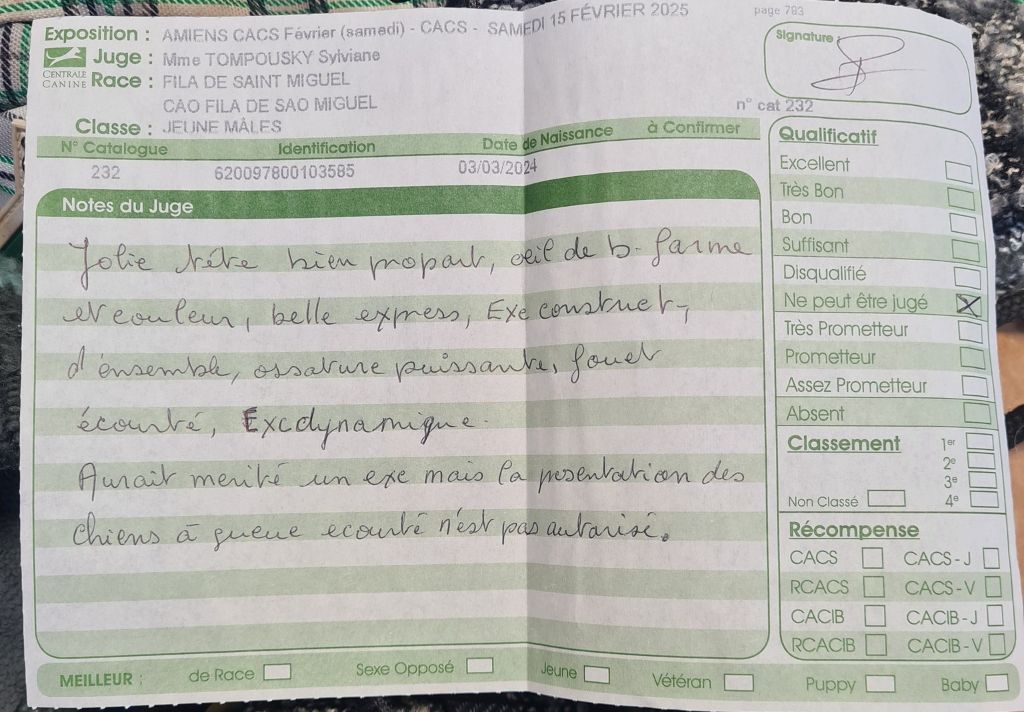 page 783
Exposition : AMIENS CACS Février (samedi) - CACS - SAMEDI 15 FÉVRIER 2025
Juge : Mme TOMPOUSKY Sylviane
CENTRALE CANINE
Race : FILA DE SAINT MIGUEL
CAO FILA DE SAO MIGUEL
Classe : JEUNE MÂLES
Signature
n° cat 232
N° Catalogue Identification Date de Naissance à Confirmer
232 620097800103585 03/03/2024
Notes du Juge
Jolie tête bien propart, œil de b. farme
et couleur, belle express, Exe construct-,
d'ensemble, ossature puissante, fouet
écourté, Excdynamique.
Aurait merité un exe mais la presentation des
chiens à queue ecourté n'est pas autorisé.
Qualificatif
Excellent
Très Bon
Bon
Suffisant
Disqualifié
Ne peut être jugé X
Très Prometteur
Prometteur
Assez Prometteur
Absent
Classement 1er
2e
3e
Non Classé 4e
Récompense
CACS CACS-J
RCACS CACS-V
CACIB CACIB-J
RCACIB CACIB-V
MEILLEUR : de Race Sexe Opposé Jeune Vétéran Puppy Baby